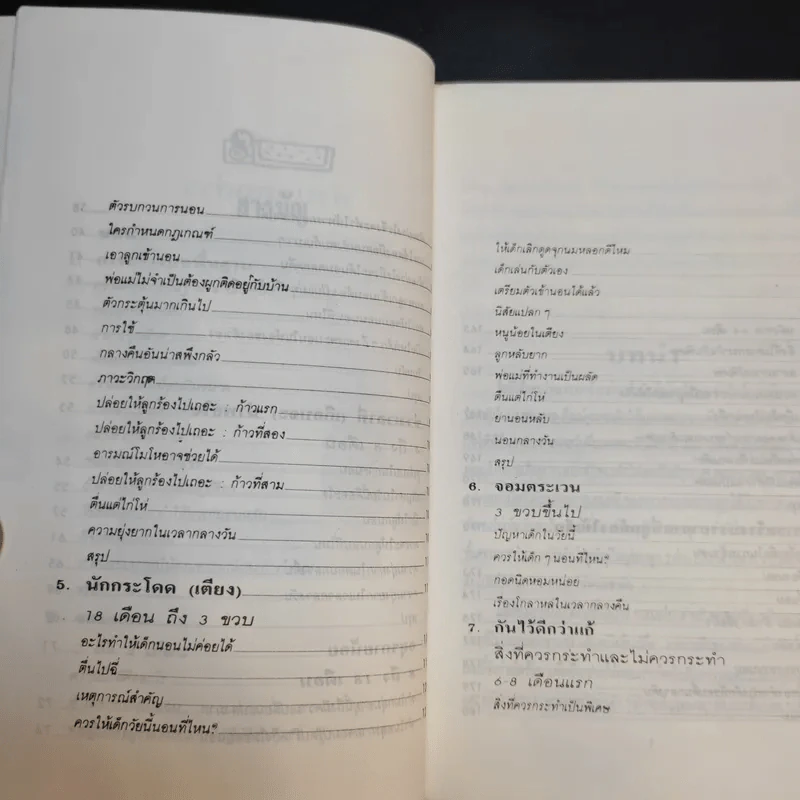 ตัวรบกวนการนอน
ใครกำหนดกฎเกณฑ์
เอาลูกเข้านอน
พ่อแม่ไม่จำเป็นต้องผูกติดอยู่กับบ้าน
ตัวกระตุ้นมากเกินไป
การใช้
กลางคืนอันน่าสพึงกลัว
ภาวะวิกฤต
ปล่อยให้ลูกร้องไปเถอะ : ก้าวแรก
ปล่อยให้ลูกร้องไปเถอะ : ก้าวที่สอง
อารมณ์โมโหอาจช่วยได้
ปล่อยให้ลูกร้องไปเถอะ : ก้าวที่สาม
ตื่นแต่ไก่โห่
ความยุ่งยากในเวลากลางวัน
สรุป
5. นักกระโดด (เตียง)
18 เดือน ถึง 3 ขวบ
อะไรทำให้เด็กนอนไม่ค่อยได้
ตื่นไปฉี่
เหตุการณ์สำคัญ
ควรให้เด็กวัยนี้นอนที่ไหน?
ให้เด็กเลิกดูดจุกนมหลอกดีไหม
เด็กเล่นกับตัวเอง
เตรียมตัวเข้านอนได้แล้ว
นิสัยแปลก ๆ
หนูน้อยในเตียง
ลูกหลับยาก
พ่อแม่ที่ทำงานเป็นผลัด
ตื่นแต่ไก่โห่
ยานอนหลับ
นอนกลางวัน
สรุป
6. จอมตระเวน
3 ขวบขึ้นไป
ปัญหาเด็กในวัยนี้
ควรให้เด็ก ๆ นอนที่ไหน?
กอดนิดหอมหน่อย
เรื่องโกลาหลในเวลากลางคืน
7. กันไว้ดีกว่าแก้
สิ่งที่ควรกระทำและไม่ควรกระทำ
6-8 เดือนแรก
สิ่งที่ควรกระทำเป็นพิเศษ